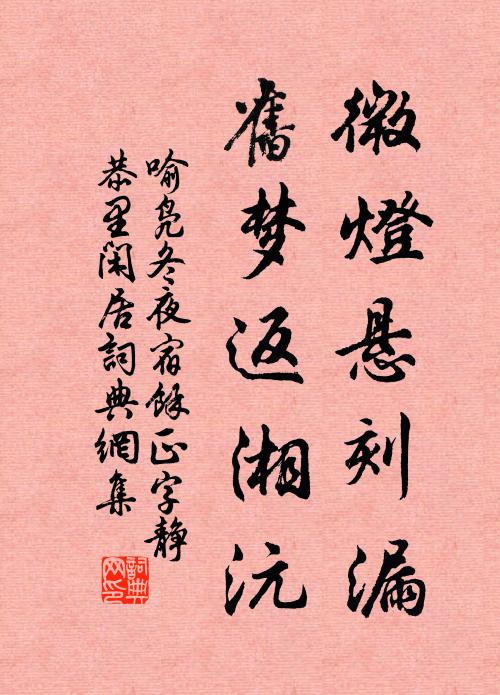 微燈悬刻漏
舊梦返湘沅
喻凫冬夜宿餘正字静
恭里闲居詞典網集
詞典网印